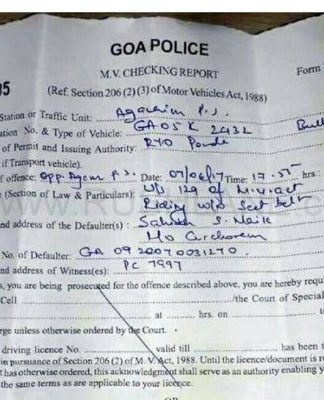 GOA POLICE
M.V. CHECKING REPORT
Form
95
(Ref. Section 206 (2) (3) of Motor Vehicles Act, 1988)
Station or Traffic Unit: Agacaim P.S.
ation No, & Type of Vehicle: GA05K 2432 Bull
of Permit and Issuing Authority: RTO Ponda
if Transport vehicle).
of offence: Opp. Agaim P.S. Date: 07/06/17 Time: 17.55 hrs
(Section of Law & Particulars): U/s 129 of M.V. act
Riding w/o Seat belt
and address of the Defaulter(s): S. Naik
r/o Curchorem
No. of Defaulter: GA 0920070031270
and address of Witness(es): PC 7997
s, you are being prosecuted for the offence described above, you are hereby requi
Cell /the Court of Special
at hrs. on to
rge unless otherwise ordered by the Court.
driving licence No. valid till has been t
in pursuance of Section 206 (2) of M. V. Act, 1988. Until the licence/document is r
t has otherwise ordered, this acknowledgment shall serve as an authority enabling y
the same terms as are applicable to your licence.